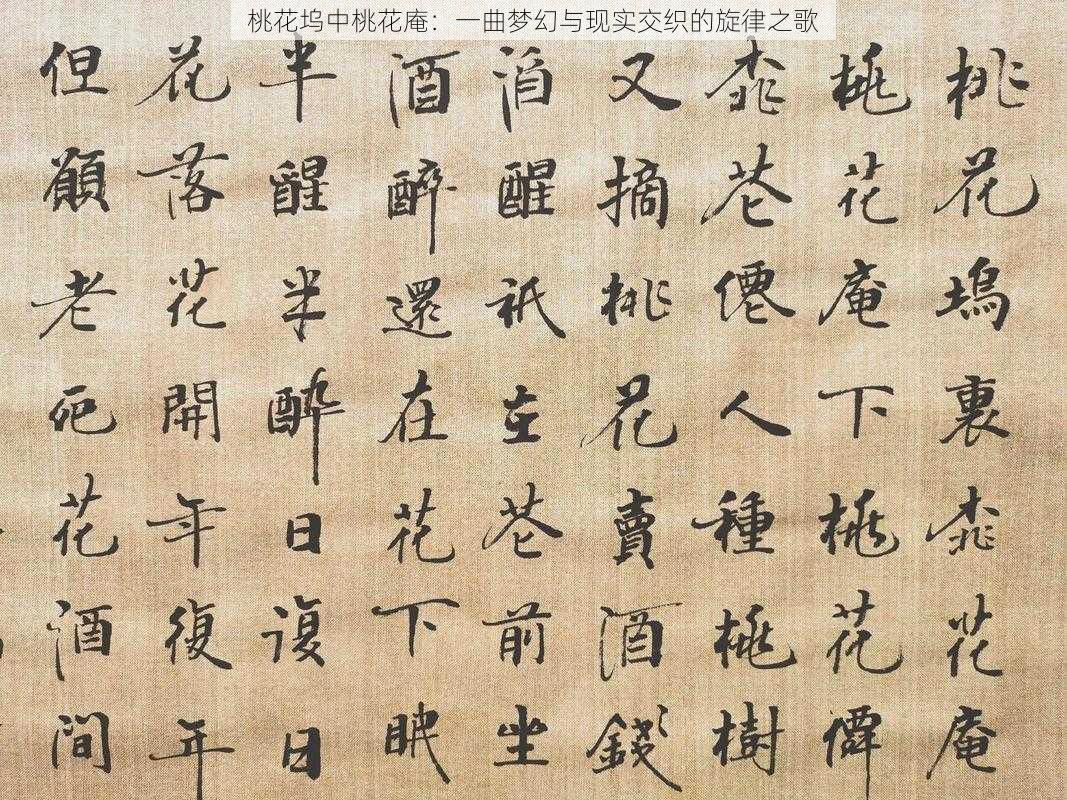 桃花坞中桃花庵：一曲梦幻与现实交织的旋律之歌
桃花塢裏桃花庵
桃花庵下桃花僊
桃花僊人種桃樹
又摘桃花賣酒錢
酒醒祇在花前坐
酒醉還在花下眠
半醒半醉日復日
花落花開年復年
但願老死花酒間